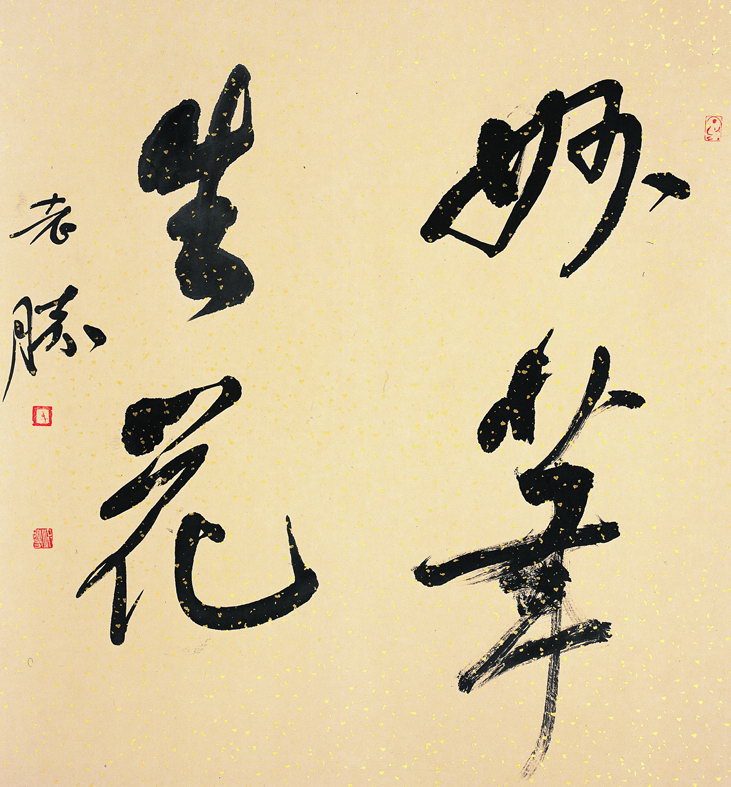 妙筆
生花
老勝